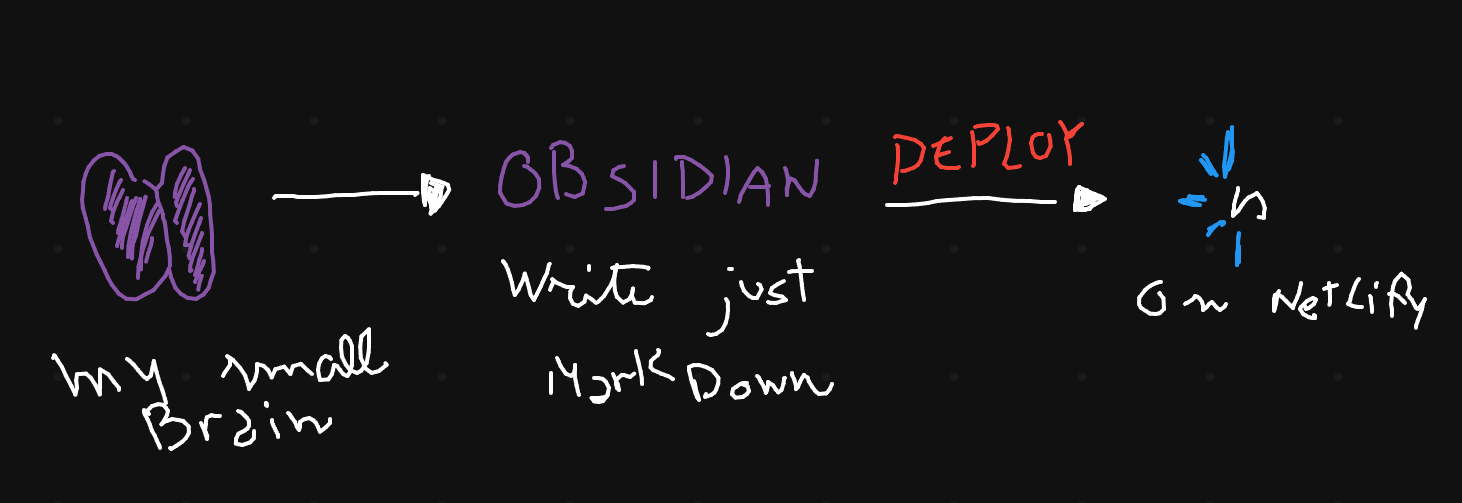 my small
Brain
OBSIDIAN
Write just
MarkDown
DEPLOY
n
On NetLify